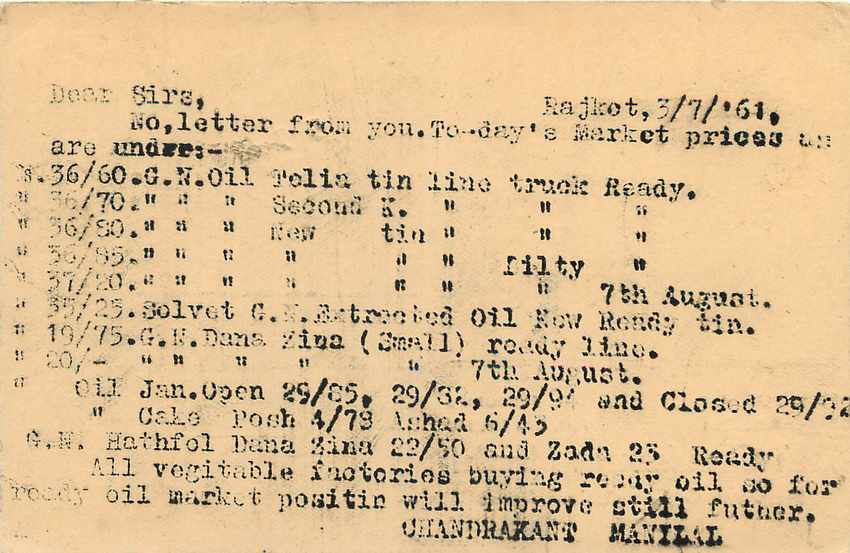 Dear Sirs,
Rajkot, 3/7/'61,
No, letter from you. To-day's Market prices as
are under:-
36/60. G.N. Oil Telia tin line truck Ready.
" 36/70. " " " Second K. " " "
" 36/80. " " " New tin " " "
" 36/85. " " " " " " filty "
" 37/20. " " " " " " " 7th August.
" 35/25. Solvet G.N. Extracted Oil New Ready tin.
" 19/75. G.N. Dana Zina (Small) ready line.
" 20/- " " " " " 7th August.
" Oil Jan. Open 29/85, 29/82, 29/94 and Closed 29/92
" Cake Posh 4/78 Ashad 6/45
G.N. Hathfol Dana Zina 22/50 and Zada 23 Ready
All vegitable factories buying ready oil so for
ready oil market positin will improve still futher.
CHANDRAKANT MANILAL